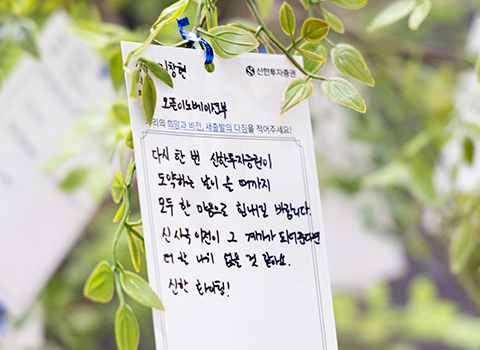 이창현
신한투자증권
오픈이노베이션부
우리의 희망과 비전, 새출발의 다짐을 적어주세요!
다시 한 번 신한투자증권이
도약하는 날이 올 때까지
모두 한 마음으로 힘내길 바랍니다.
신사옥 이전이 그 계기가 되어준다면
더할 나위 없을 것 같아요.
신한 화이팅!